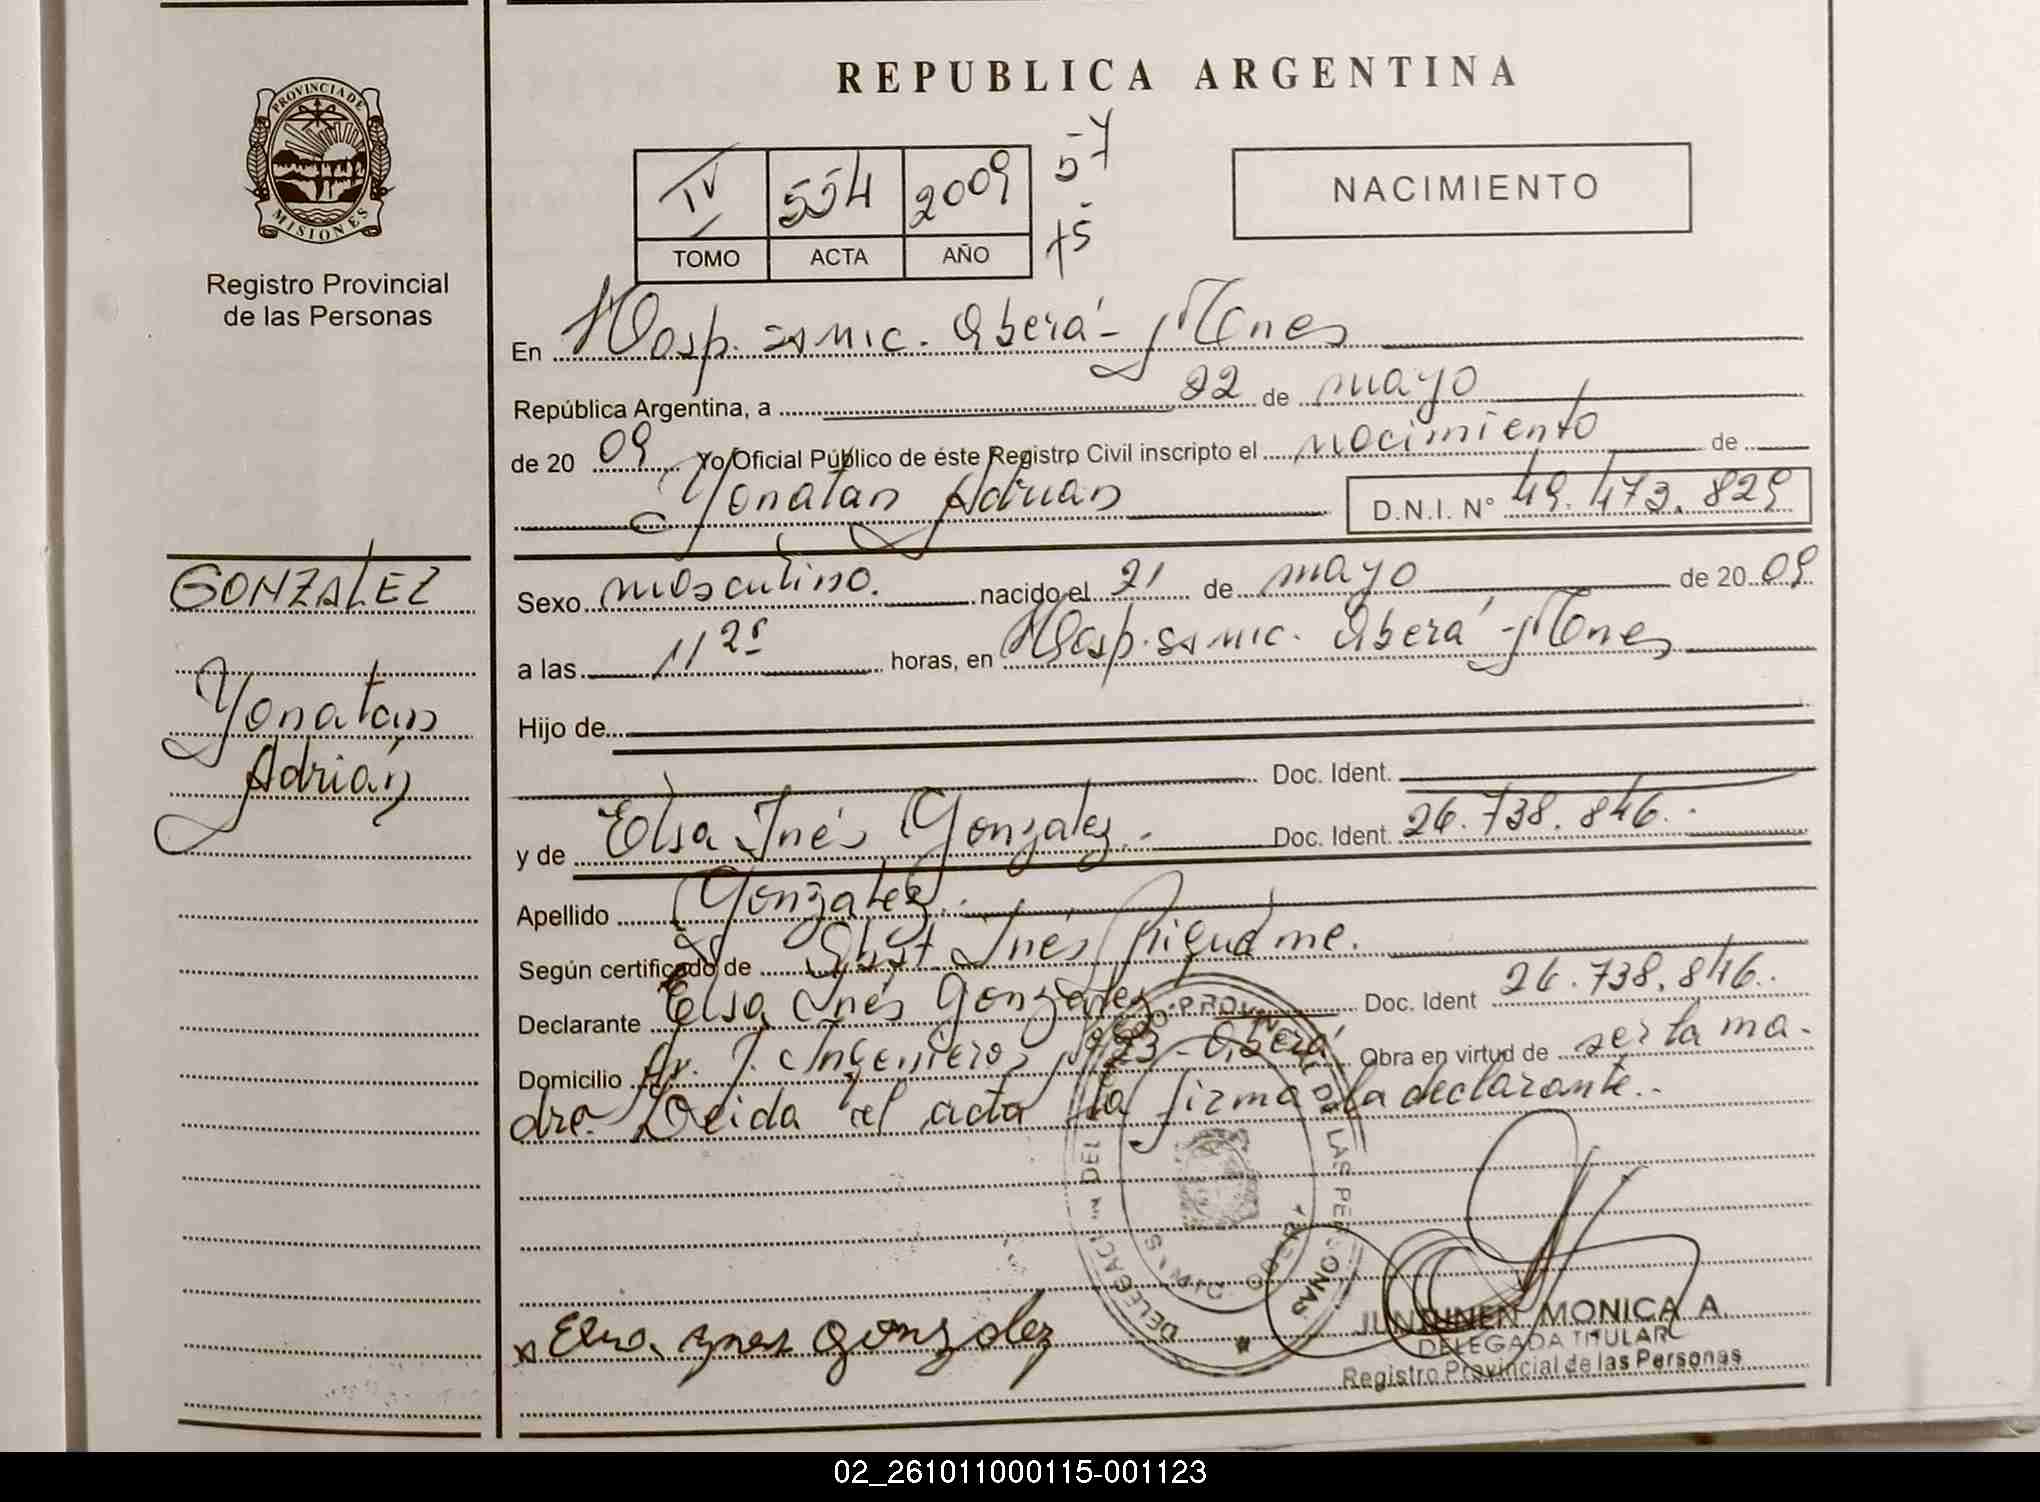 REPUBLICA ARGENTINA
PROVINCIA DE
MISIONES
Registro Provincial
de las Personas
IV 554 2009
TOMO ACTA AÑO
57
75
NACIMIENTO
En Hosp. Oberá - Mnes
República Argentina, a 22 de mayo
de 20 09 Yo Oficial Público de éste Registro Civil inscripto el nacimiento de
Yonatan Adrian D.N.I. N° 49.473.829
GONZALEZ
Yonatan
Adrián
Sexo masculino. nacido el 21 de mayo de 20 09
a las 11 25 horas, en Hosp. Oberá - Mnes
Hijo de
Doc. Ident.
y de Elsa Inés Gonzalez. Doc. Ident. 26.738.846.
Apellido Gonzalez.
Según certificado de Obst. Inés
Declarante Elsa Inés Gonzalez Doc. Ident 26.738.846.
Domicilio Av. J. Ingenieros Oberá Obra en virtud de ser la ma-
dre. Leida el acta la firma la declarante.-
DELEGACION DEL REGISTRO PROVINCIAL DE LAS PERSONAS
x Elsa ynes gonzalez
MONICA A.
DELEGADA TITULAR
Registro Provincial de las Personas
02_261011000115-001123